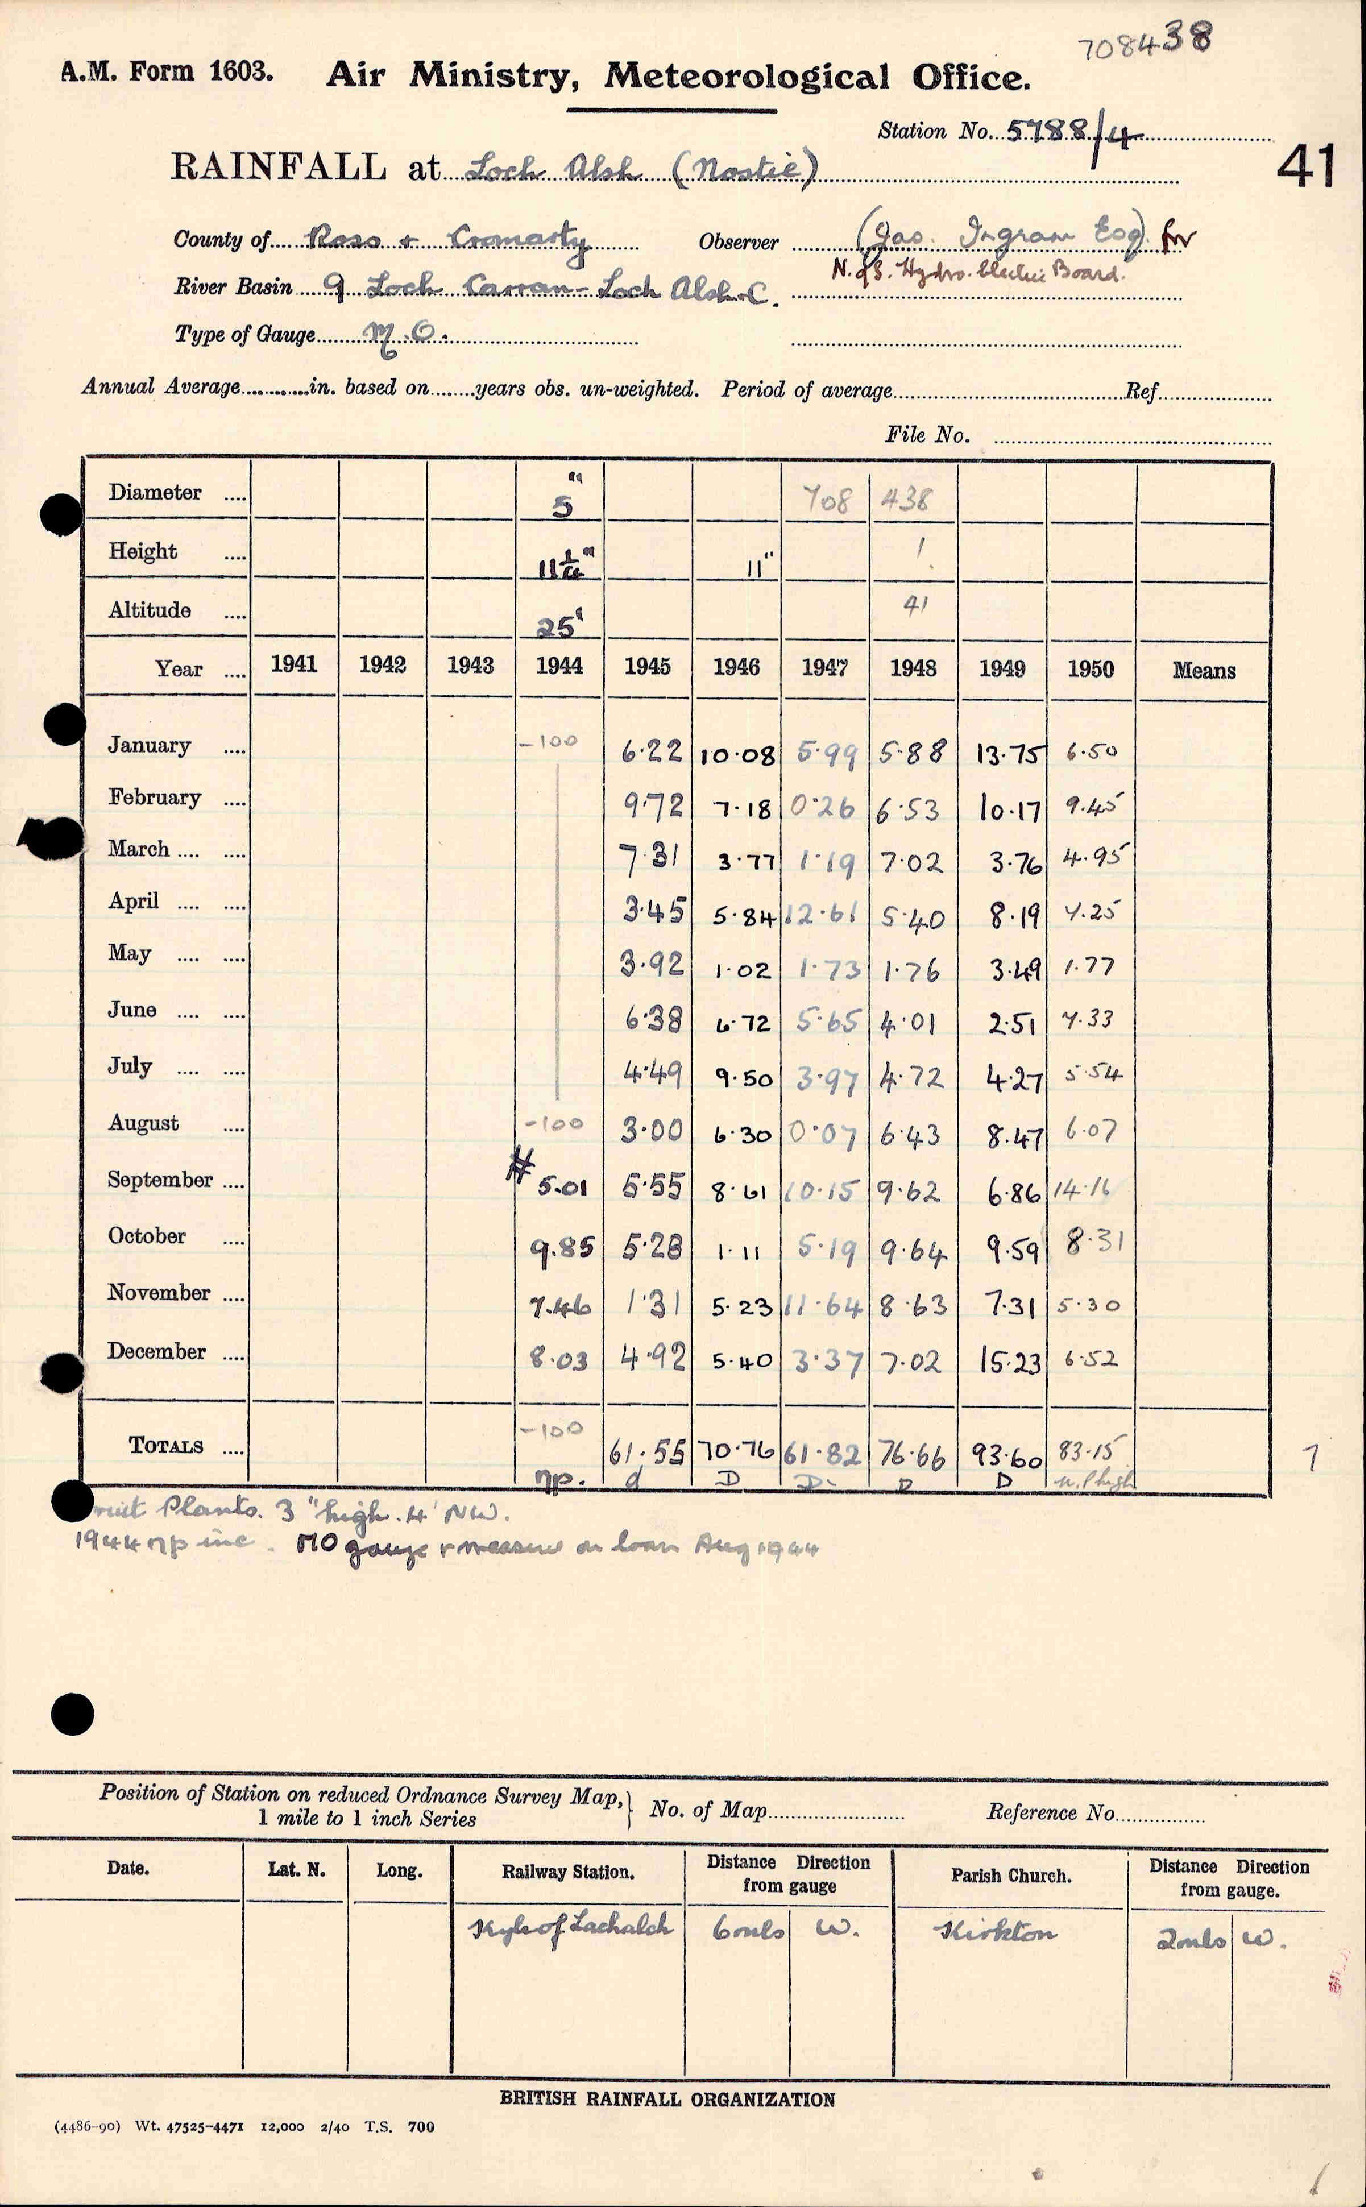 708438
A.M. Form 1603. Air Ministry, Meteorological Office.
Station No. 5788/4
41
RAINFALL at Loch Alsh (Nostie)
County of Ross + Cromarty Observer (Jas. Ingram Esq) for
N. of S. Hydro. Electric Board.
River Basin 9 Loch Carran - Loch Alsh - C.
Type of Gauge M.O.
Annual Average in. based on years obs. un-weighted. Period of average Ref
File No.
Diameter 5" 708 438
Height 11¼" 11" 1
Altitude 25' 41
Year 1941 1942 1943 1944 1945 1946 1947 1948 1949 1950 Means
January -100 6.22 10.08 5.99 5.88 13.75 6.50
February 9.72 7.18 0.26 6.53 10.17 9.45
March 7.31 3.77 1.19 7.02 3.76 4.95
April 3.45 5.84 12.61 5.40 8.19 7.25
May 3.92 1.02 1.73 1.76 3.49 1.77
June 6.38 6.72 5.65 4.01 2.51 7.33
July 4.49 9.50 3.97 4.72 4.27 5.54
August -100 3.00 6.30 0.07 6.43 8.47 6.07
September # 5.01 5.55 8.61 10.15 9.62 6.86 14.16
October 9.85 5.28 1.11 5.19 9.64 9.59 8.31
November 7.46 1.31 5.23 11.64 8.63 7.31 5.30
December 8.03 4.92 5.40 3.37 7.02 15.23 6.52
TOTALS -100 61.55 70.76 61.82 76.66 93.60 83.15
np. d D D D D
Plants. 3" high. 4' NW.
1944 np inc. MO gauge + measure on loan Aug 1944
Position of Station on reduced Ordnance Survey Map, 1 mile to 1 inch Series } No. of Map Reference No.
Date. Lat. N. Long. Railway Station. Distance Direction from gauge Parish Church. Distance Direction from gauge.
Kyle of Lochalsh 6 mls W. Kirkton 2 mls W.
BRITISH RAINFALL ORGANIZATION
(4486-90) Wt. 47525-4471 12,000 2/40 T.S. 700